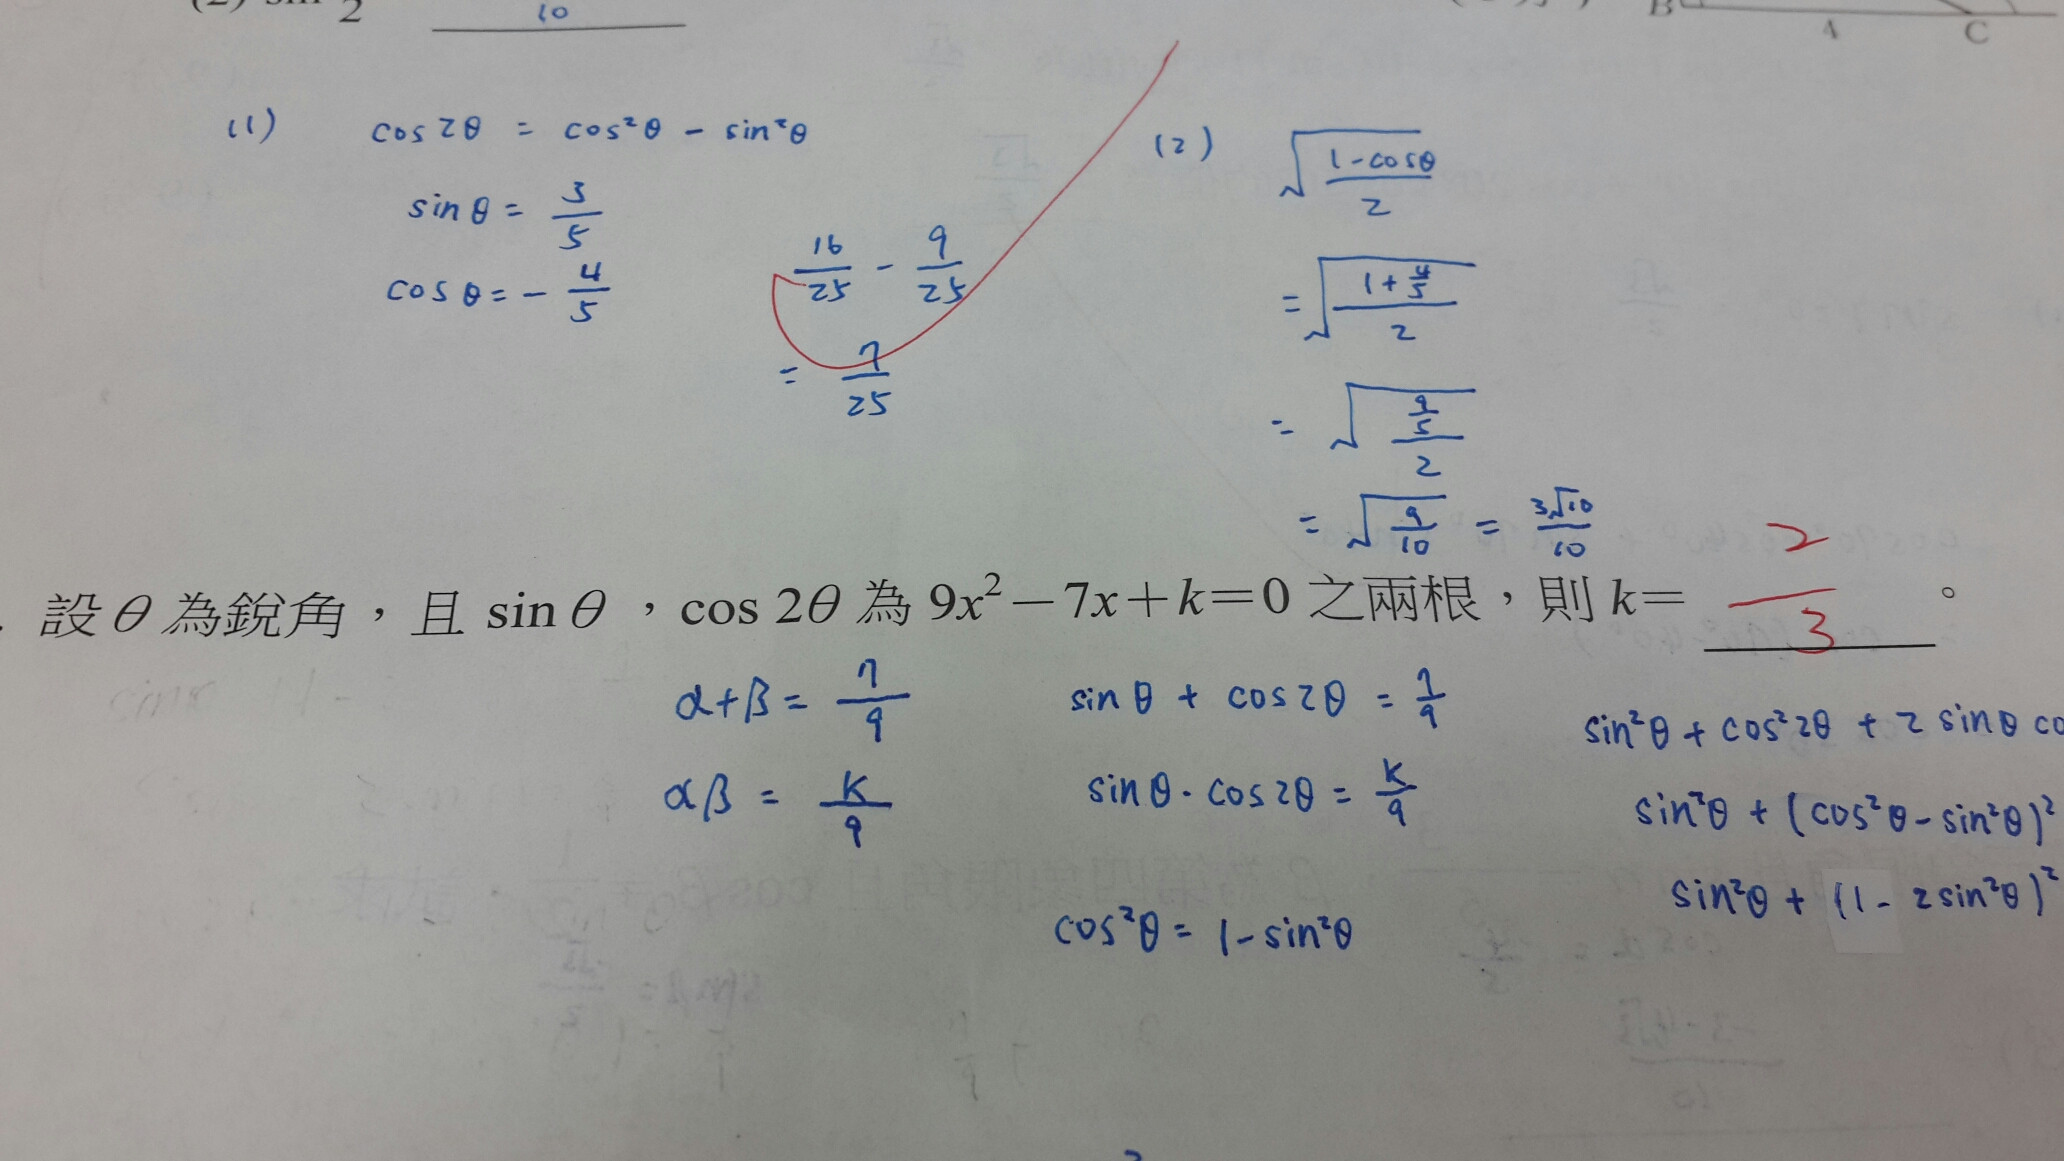 (2) sin 2
10
B A C
(1) cos2θ = cos²θ - sin²θ
sinθ = 3/5
cosθ = - 4/5
16/25 - 9/25
= 7/25
(2) √((1-cosθ)/2)
= √((1+4/5)/2)
= √((9/5)/2)
= √(9/10) = 3√10/10
設θ為銳角，且 sin θ ，cos 2θ 為 9x²－7x＋k＝0 之兩根，則 k＝ 2/3 。
α+β = 7/9 sinθ + cos2θ = 7/9 sin²θ + cos²2θ + 2 sinθ co
αβ = k/9 sinθ · cos2θ = k/9 sin²θ + (cos²θ - sin²θ)²
cos²θ = 1 - sin²θ sin²θ + (1 - 2sin²θ)²